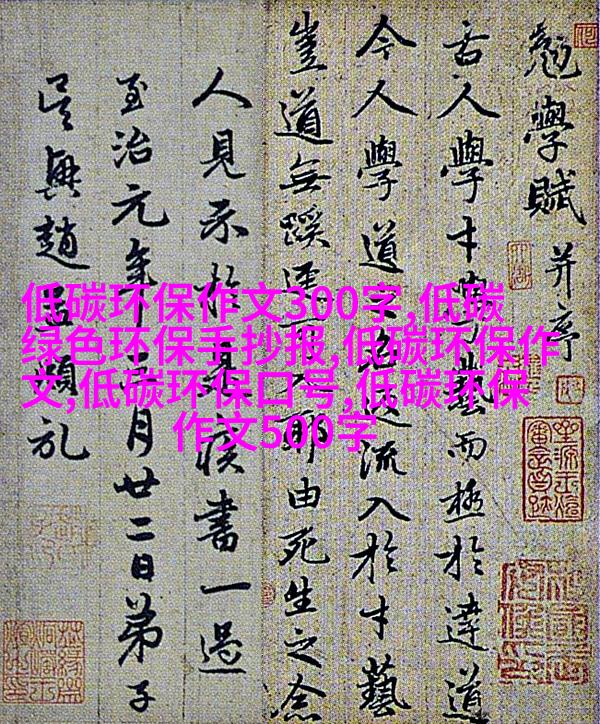 勉學賦 并序
古人學才藝而極於達道
今人學道流入於才藝
豈道無蹊入耶由死生之念
人見示於疾書一過
至治元年月廿二日弟子
吳興趙孟頫
低碳环保作文300字,低碳
绿色环保手抄报,低碳环保作
文,低碳环保口号,低碳环保
作文500字